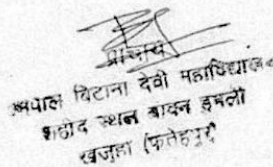 प्राचार्य
पाल बिटाना देवी महाविद्यालय
शहीद स्थल बावन इमली
खजुहा (फतेहपुर)